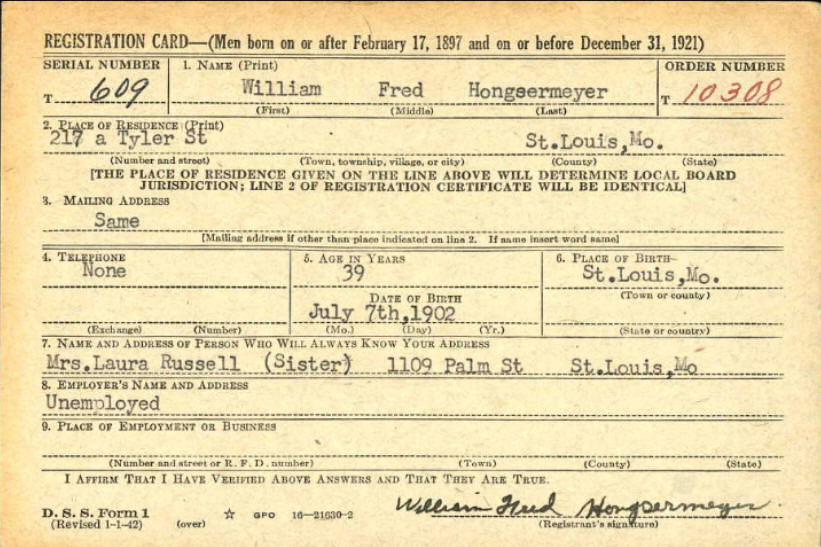 REGISTRATION CARD—(Men born on or after February 17, 1897 and on or before December 31, 1921)
SERIAL NUMBER 1. NAME (Print) ORDER NUMBER
T 609 William Fred Hongsermeyer T 10308
(First) (Middle) (Last)
2. PLACE OF RESIDENCE (Print)
217 a Tyler St St.Louis,Mo.
(Number and street) (Town, township, village, or city) (County) (State)
[THE PLACE OF RESIDENCE GIVEN ON THE LINE ABOVE WILL DETERMINE LOCAL BOARD
JURISDICTION; LINE 2 OF REGISTRATION CERTIFICATE WILL BE IDENTICAL]
3. MAILING ADDRESS
Same
[Mailing address if other than place indicated on line 2. If same insert word same]
4. TELEPHONE 5. AGE IN YEARS 6. PLACE OF BIRTH
None 39 St.Louis,Mo.
DATE OF BIRTH (Town or county)
July 7th,1902
(Exchange) (Number) (Mo.) (Day) (Yr.) (State or country)
7. NAME AND ADDRESS OF PERSON WHO WILL ALWAYS KNOW YOUR ADDRESS
Mrs.Laura Russell (Sister) 1109 Palm St St.Louis,Mo
8. EMPLOYER'S NAME AND ADDRESS
Unemployed
9. PLACE OF EMPLOYMENT OR BUSINESS
(Number and street or R. F. D. number) (Town) (County) (State)
I AFFIRM THAT I HAVE VERIFIED ABOVE ANSWERS AND THAT THEY ARE TRUE.
D. S. S. Form 1 William Fred Hongsermeyer
(Revised 1-1-42) (over) ☆ GPO 16—21630-2 (Registrant's signature)